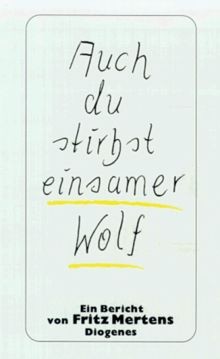 Auch
du
stirbst
einsamer
Wolf
Ein Bericht
von Fritz Mertens
Diogenes